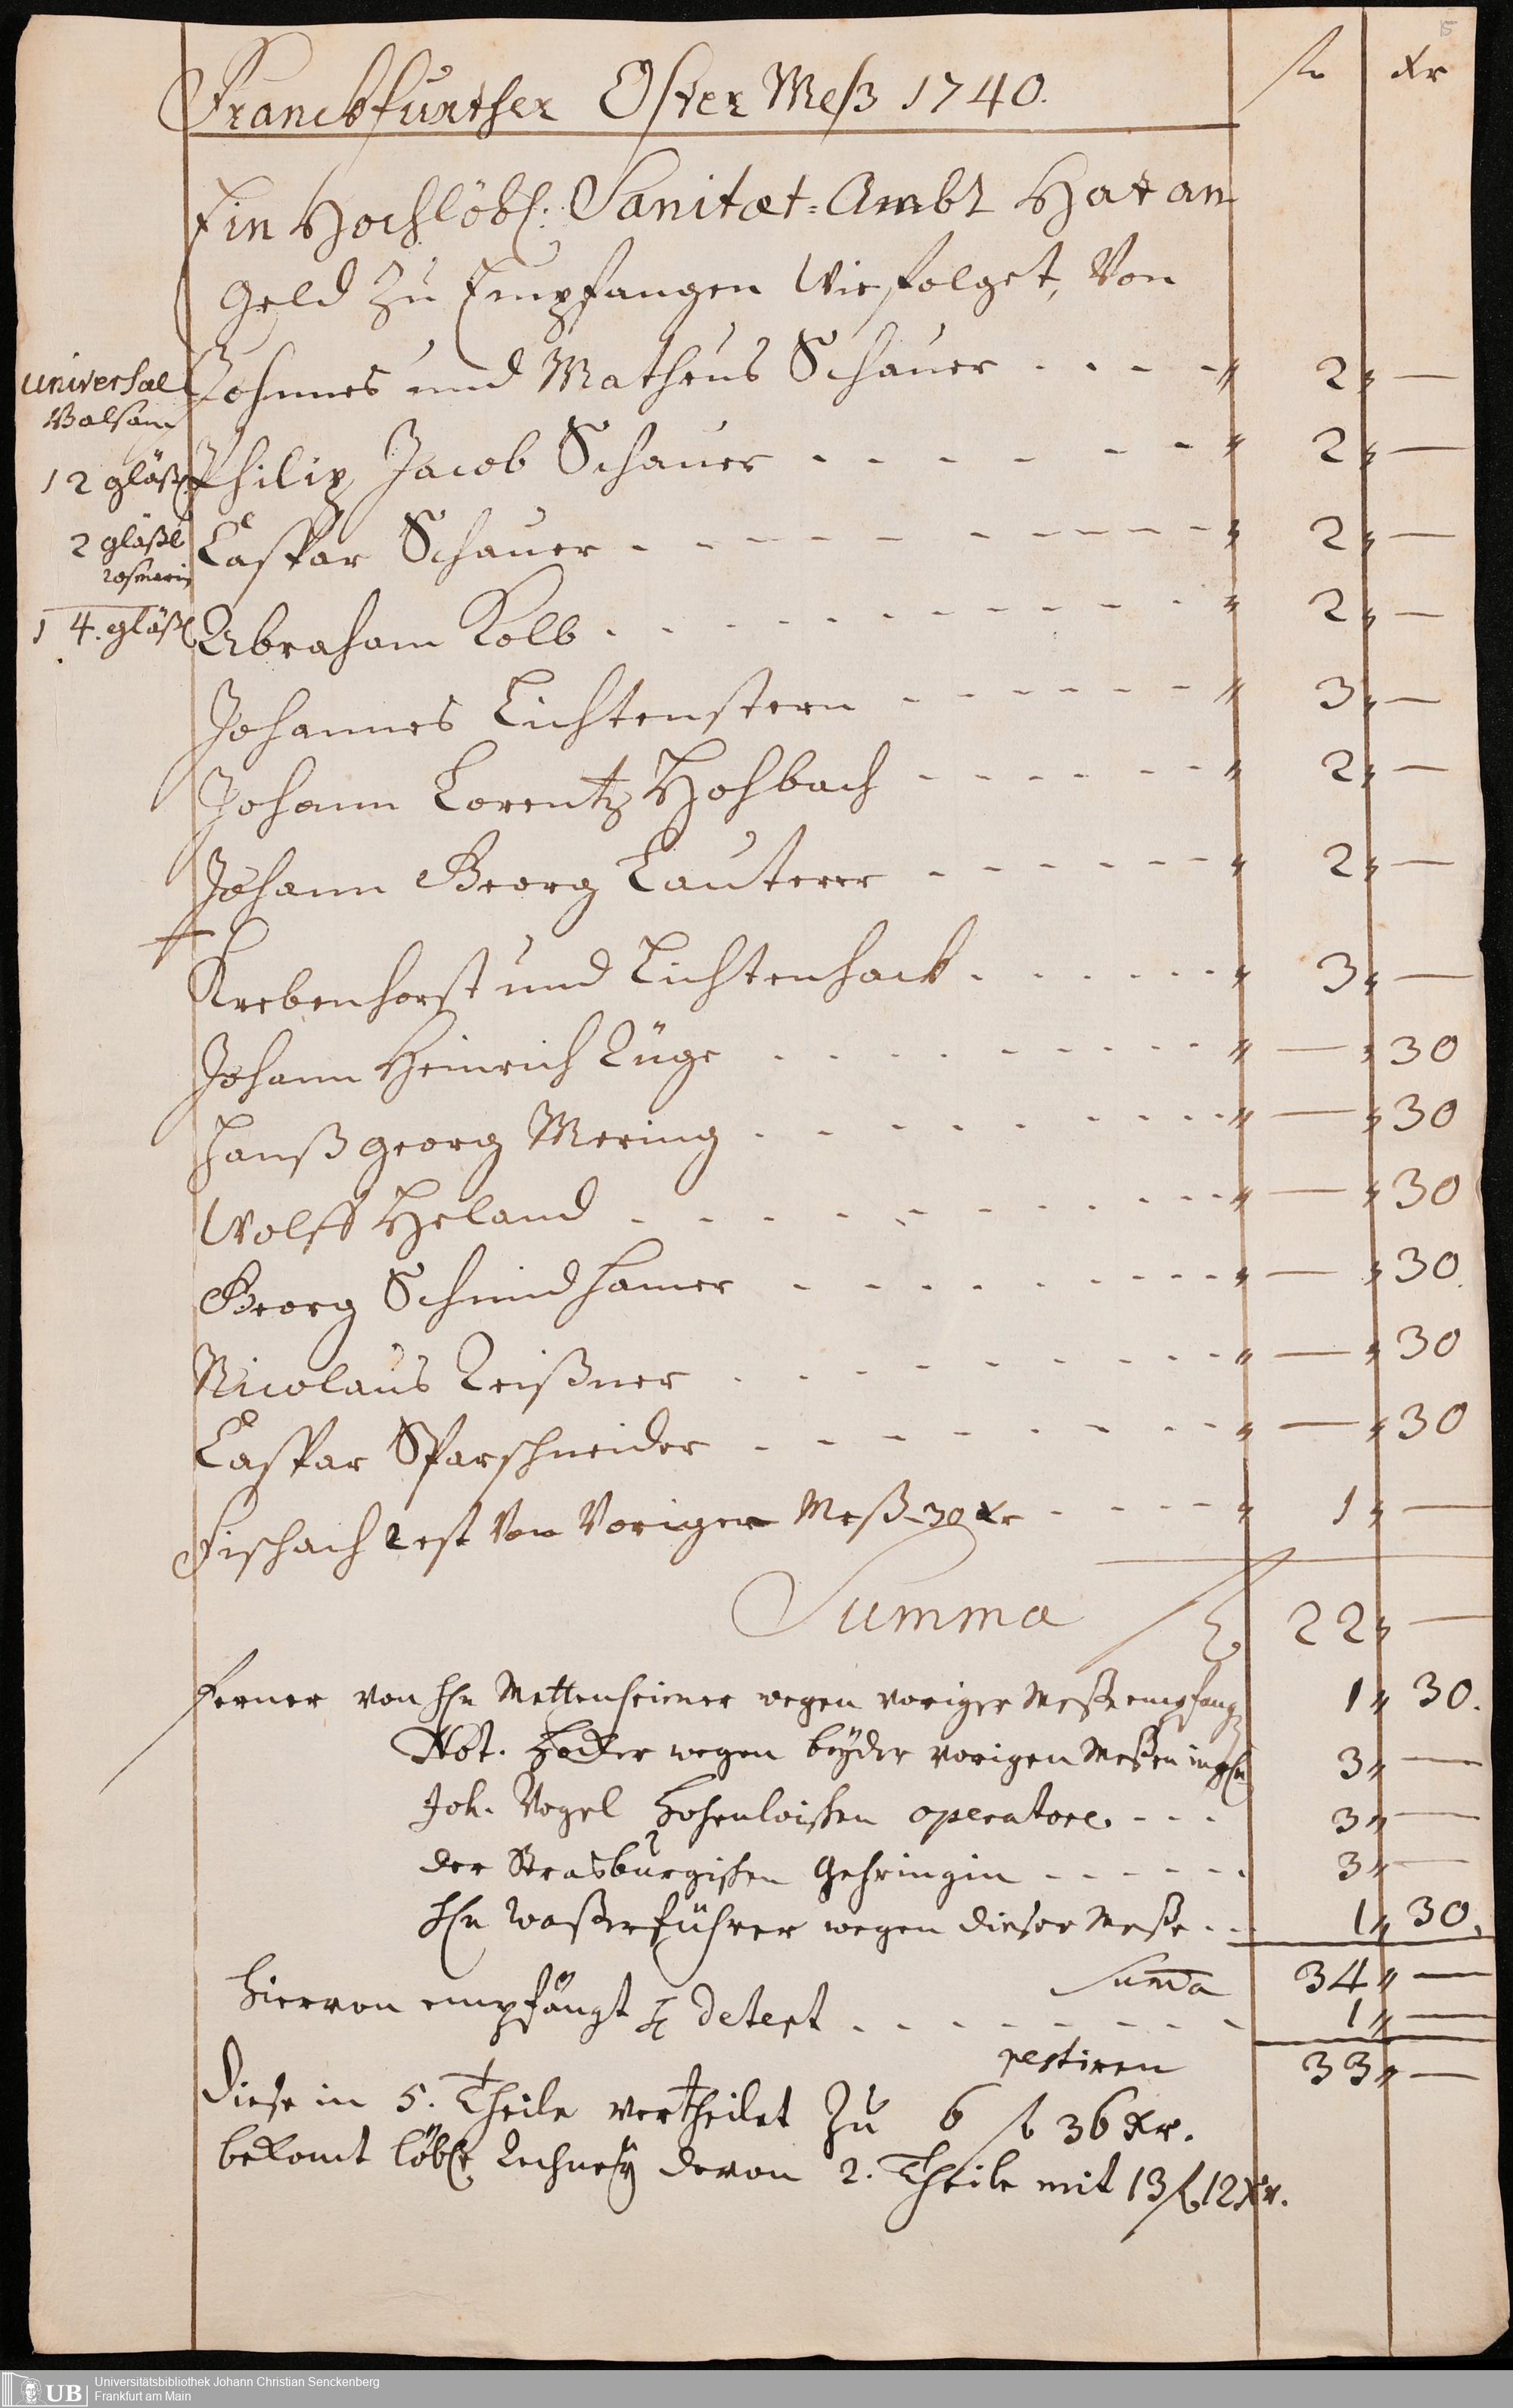 fl Xr
Franckfurther Oster Meß 1740.
Ein Hochlöbl: Sanitæt-Ambt Hat an
Geld Zu Empfangen Wie folget, Von
Johnnes und Matheus Schauer . . . . „ 2 „ —
Universal
Balsam
Philip Jacob Schauer . . . . . . „ 2 „ —
12 gläßl
Caspar Schauer . . . . . . . . „ 2 „ —
2 gläßl
rosmarin
Abraham Kolb . . . . . . . . „ 2 „ —
14. gläßl
Johannes Lichtenstern . . . . . . „ 3 „ —
Johann Lorentz Hohbach . . . . . . „ 2 „ —
Johann Georg Lauterer . . . . . . „ 2 „ —
Krebenhorst und Lichtenhack . . . . . . „ 3 „ —
Johann Heinrich Lüge . . . . . . . . „ — „ 30
Hanß georg Mering . . . . . . . . „ — „ 30
Wolff Heland . . . . . . . . „ — „ 30
Georg Schmidhamer . . . . . . . . „ — „ 30.
Nicolaus Reißner . . . . . . . . „ — „ 30
Caspar Sparschneider . . . . . . . . „ — „ 30
Fischach rest Von Voriger Meß 30 Xr . . . . „ 1 „ —
Summa fl 22 „ —
Ferner von Hn Mettenheimer wegen voriger Meße empfang 1 „ 30.
Not. wegen beyder vorigen Meßen 3 „ —
Joh. Vogel Hohenloischen operatore . . . 3 „ —
der Strasburgischen Gehringin . . . . . . 3 „ —
Hn Waßerführer wegen dieser Meße . . 1 „ 30.
Suma 34 „ —
hiervon empfängt H detert . . . . . . . . 1 „ —
restiren 33 „ —
Diese in 5. Theile vertheilet Zu 6 fl 36 Xr.
bekomt löbl. Rechney davon 2. Theile mit 13 fl 12 Xr.
UB
Universitätsbibliothek Johann Christian Senckenberg
Frankfurt am Main